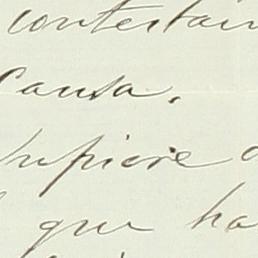 contestar
causa.
supiere
que ha